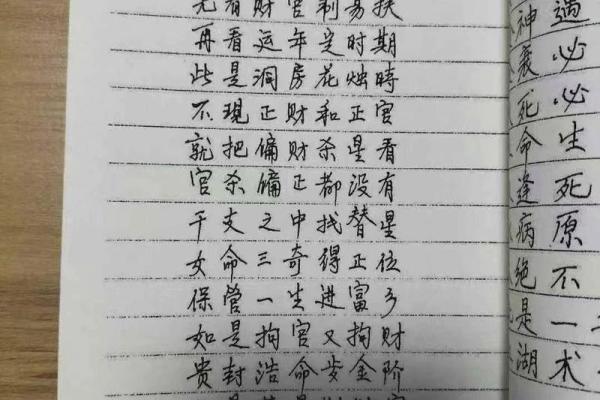 先看财官制易扶
再看运年定时期
此是洞房花烛時
不現正财和正官
就把偏财杀星看
官杀偏正都没有
干支之中找替星
女命三奇得正位
保管一生进富乡
如是拘官又拘财
贵封浩命步金阶
神遇
衰必
死必
命生
逢死
病原
绝不
是一
湖术